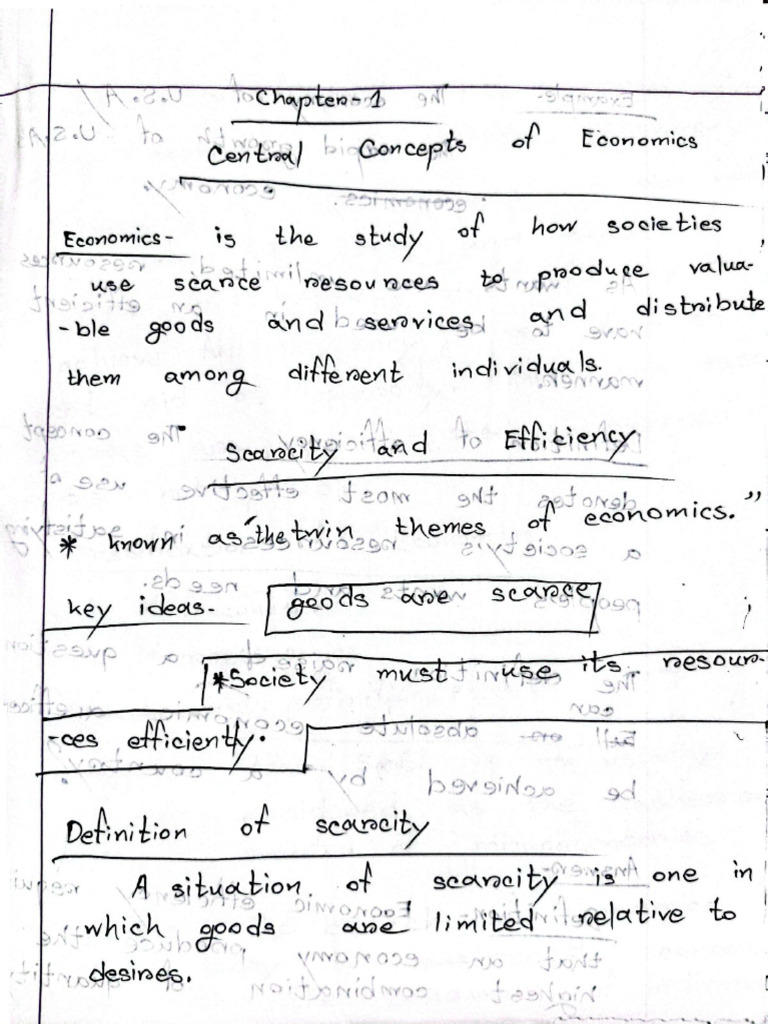 Chapter-1
Central Concepts of Economics
Economics- is the study of how societies
use scarce resources to produce valua-
-ble goods and services and distribute
them among different individuals.
Scarcity and Efficiency
* known as "the twin themes of economics."
key ideas- goods are scarce
*Society must use its resour-
-ces efficiently.
Definition of scarcity
A situation of scarcity is one in
which goods are limited relative to
desires.